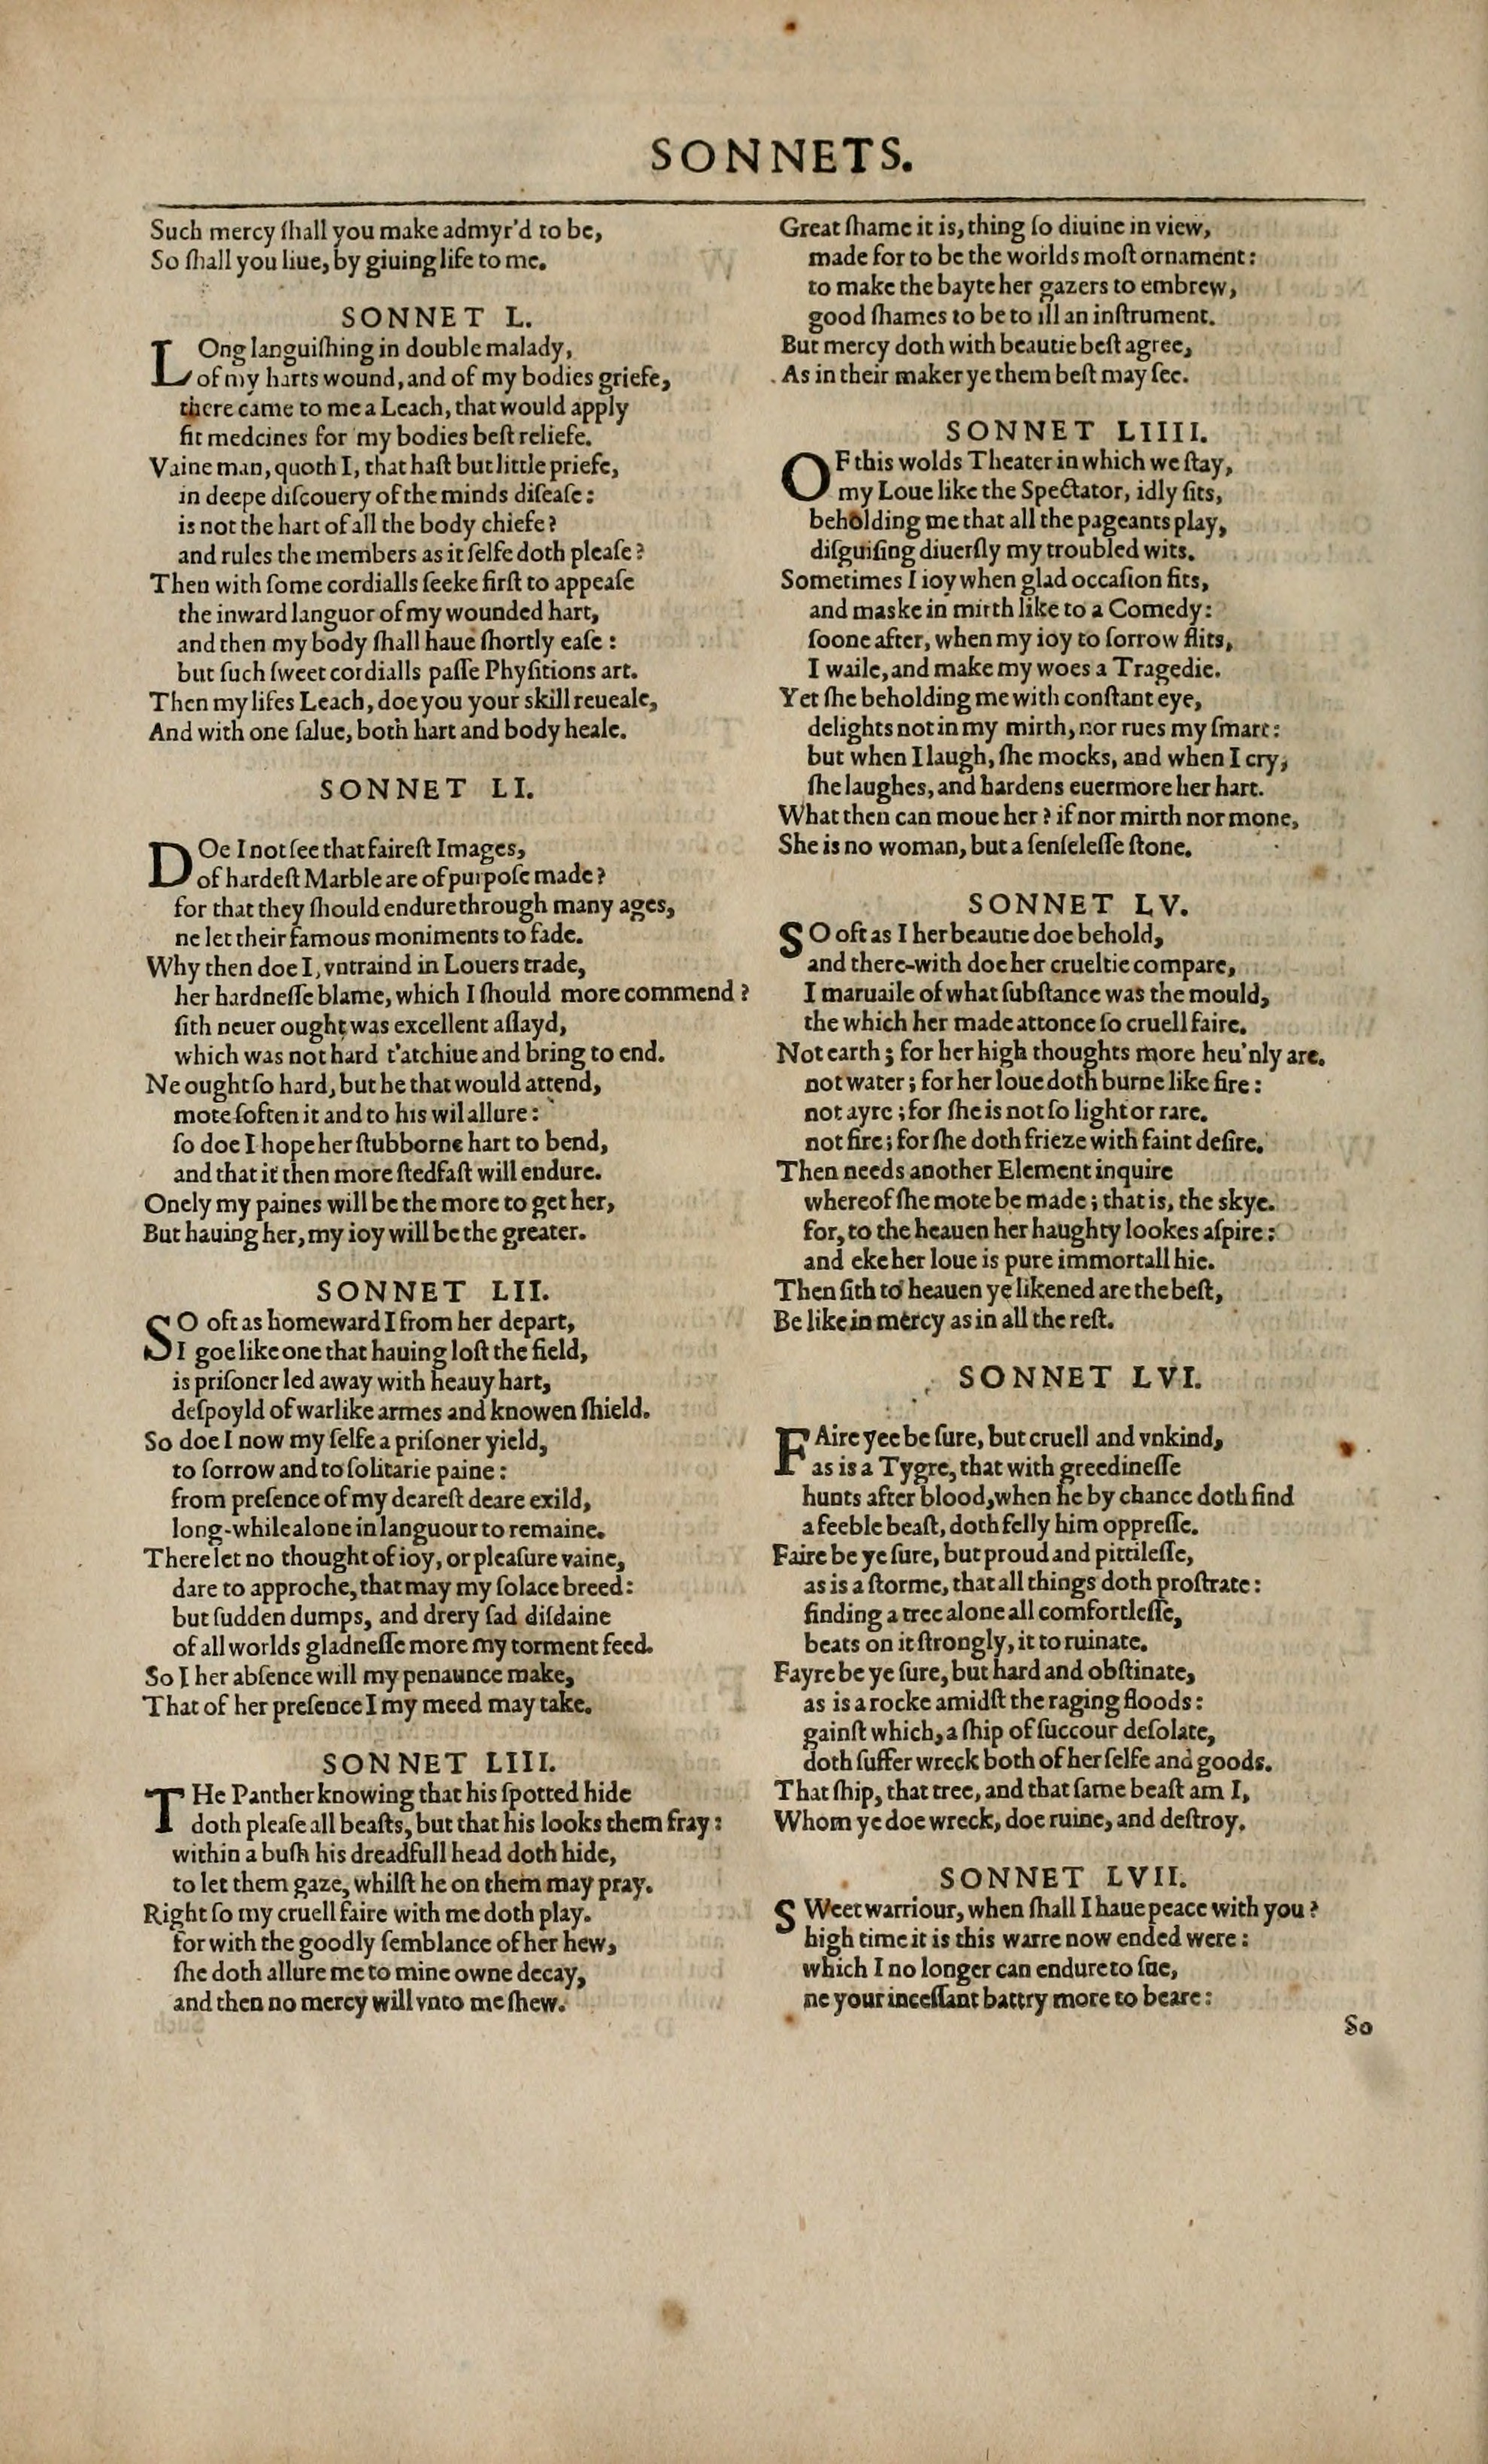 SONNETS.
Such mercy ſhall you make admyr'd to be,
So ſhall you liue, by giuing life to me.
SONNET L.
LOng languiſhing in double malady,
of my harts wound, and of my bodies griefe,
there came to me a Leach, that would apply
fit medcines for my bodies beſt reliefe.
Vaine man, quoth I, that haſt but little priefe,
in deepe diſcouery of the minds diſeaſe:
is not the hart of all the body chiefe?
and rules the members as it ſelfe doth pleaſe?
Then with ſome cordialls ſeeke firſt to appeaſe
the inward languor of my wounded hart,
and then my body ſhall haue ſhortly eaſe:
but ſuch ſweet cordialls paſſe Phyſitions art.
Then my lifes Leach, doe you your skill reueale,
And with one ſalue, both hart and body heale.
SONNET LI.
DOe I not ſee that faireſt Images,
of hardeſt Marble are of purpoſe made?
for that they ſhould endure through many ages,
ne let their famous moniments to fade.
Why then doe I, vntraind in Louers trade,
her hardneſſe blame, which I ſhould more commend?
ſith neuer ought was excellent aſſayd,
which was not hard t'atchiue and bring to end.
Ne ought ſo hard, but he that would attend,
mote ſoften it and to his wil allure:
ſo doe I hope her ſtubborne hart to bend,
and that it then more ſtedfaſt will endure.
Onely my paines will be the more to get her,
But hauing her, my ioy will be the greater.
SONNET LII.
SO oft as homeward I from her depart,
I goe like one that hauing loſt the field,
is priſoner led away with heauy hart,
deſpoyld of warlike armes and knowen ſhield.
So doe I now my ſelfe a priſoner yield,
to ſorrow and to ſolitarie paine:
from preſence of my deareſt deare exild,
long-while alone in languour to remaine.
There let no thought of ioy, or pleaſure vaine,
dare to approche, that may my ſolace breed:
but ſudden dumps, and drery ſad diſdaine
of all worlds gladneſſe more my torment feed.
So I her abſence will my penaunce make,
That of her preſence I my meed may take.
SONNET LIII.
THe Panther knowing that his ſpotted hide
doth pleaſe all beaſts, but that his looks them fray:
within a buſh his dreadfull head doth hide,
to let them gaze, whilſt he on them may pray.
Right ſo my cruell faire with me doth play.
for with the goodly ſemblance of her hew,
ſhe doth allure me to mine owne decay,
and then no mercy will vnto me ſhew.
Great ſhame it is, thing ſo diuine in view,
made for to be the worlds moſt ornament:
to make the bayte her gazers to embrew,
good ſhames to be to ill an inſtrument.
But mercy doth with beautie beſt agree,
As in their maker ye them beſt may ſee.
SONNET LIIII.
OF this wolds Theater in which we ſtay,
my Loue like the Spectator, idly ſits,
beholding me that all the pageants play,
diſguiſing diuerſly my troubled wits.
Sometimes I ioy when glad occaſion fits,
and maske in mirth like to a Comedy:
ſoone after, when my ioy to ſorrow flits,
I waile, and make my woes a Tragedie.
Yet ſhe beholding me with conſtant eye,
delights not in my mirth, nor rues my ſmart:
but when I laugh, ſhe mocks, and when I cry,
ſhe laughes, and hardens euermore her hart.
What then can moue her? if nor mirth nor mone,
She is no woman, but a ſenſeleſſe ſtone.
SONNET LV.
SO oft as I her beautie doe behold,
and there-with doe her crueltie compare,
I maruaile of what ſubſtance was the mould,
the which her made attonce ſo cruell faire.
Not earth; for her high thoughts more heu'nly are.
not water; for her loue doth burne like fire:
not ayre; for ſhe is not ſo light or rare.
not fire; for ſhe doth frieze with faint deſire.
Then needs another Element inquire
whereof ſhe mote be made; that is, the skye.
for, to the heauen her haughty lookes aſpire:
and eke her loue is pure immortall hie.
Then ſith to heauen ye likened are the beſt,
Be like in mercy as in all the reſt.
SONNET LVI.
FAire yee be ſure, but cruell and vnkind,
as is a Tygre, that with greedineſſe
hunts after blood, when he by chance doth find
a feeble beaſt, doth felly him oppreſſe.
Faire be ye ſure, but proud and pittileſſe,
as is a ſtorme, that all things doth proſtrate:
finding a tree alone all comfortleſſe,
beats on it ſtrongly, it to ruinate.
Fayre be ye ſure, but hard and obſtinate,
as is a rocke amidſt the raging floods:
gainſt which, a ſhip of ſuccour deſolate,
doth ſuffer wreck both of her ſelfe and goods.
That ſhip, that tree, and that ſame beaſt am I,
Whom ye doe wreck, doe ruine, and deſtroy.
SONNET LVII.
SWeet warriour, when ſhall I haue peace with you?
high time it is this warre now ended were:
which I no longer can endure to ſue,
ne your inceſſant battry more to beare:
So